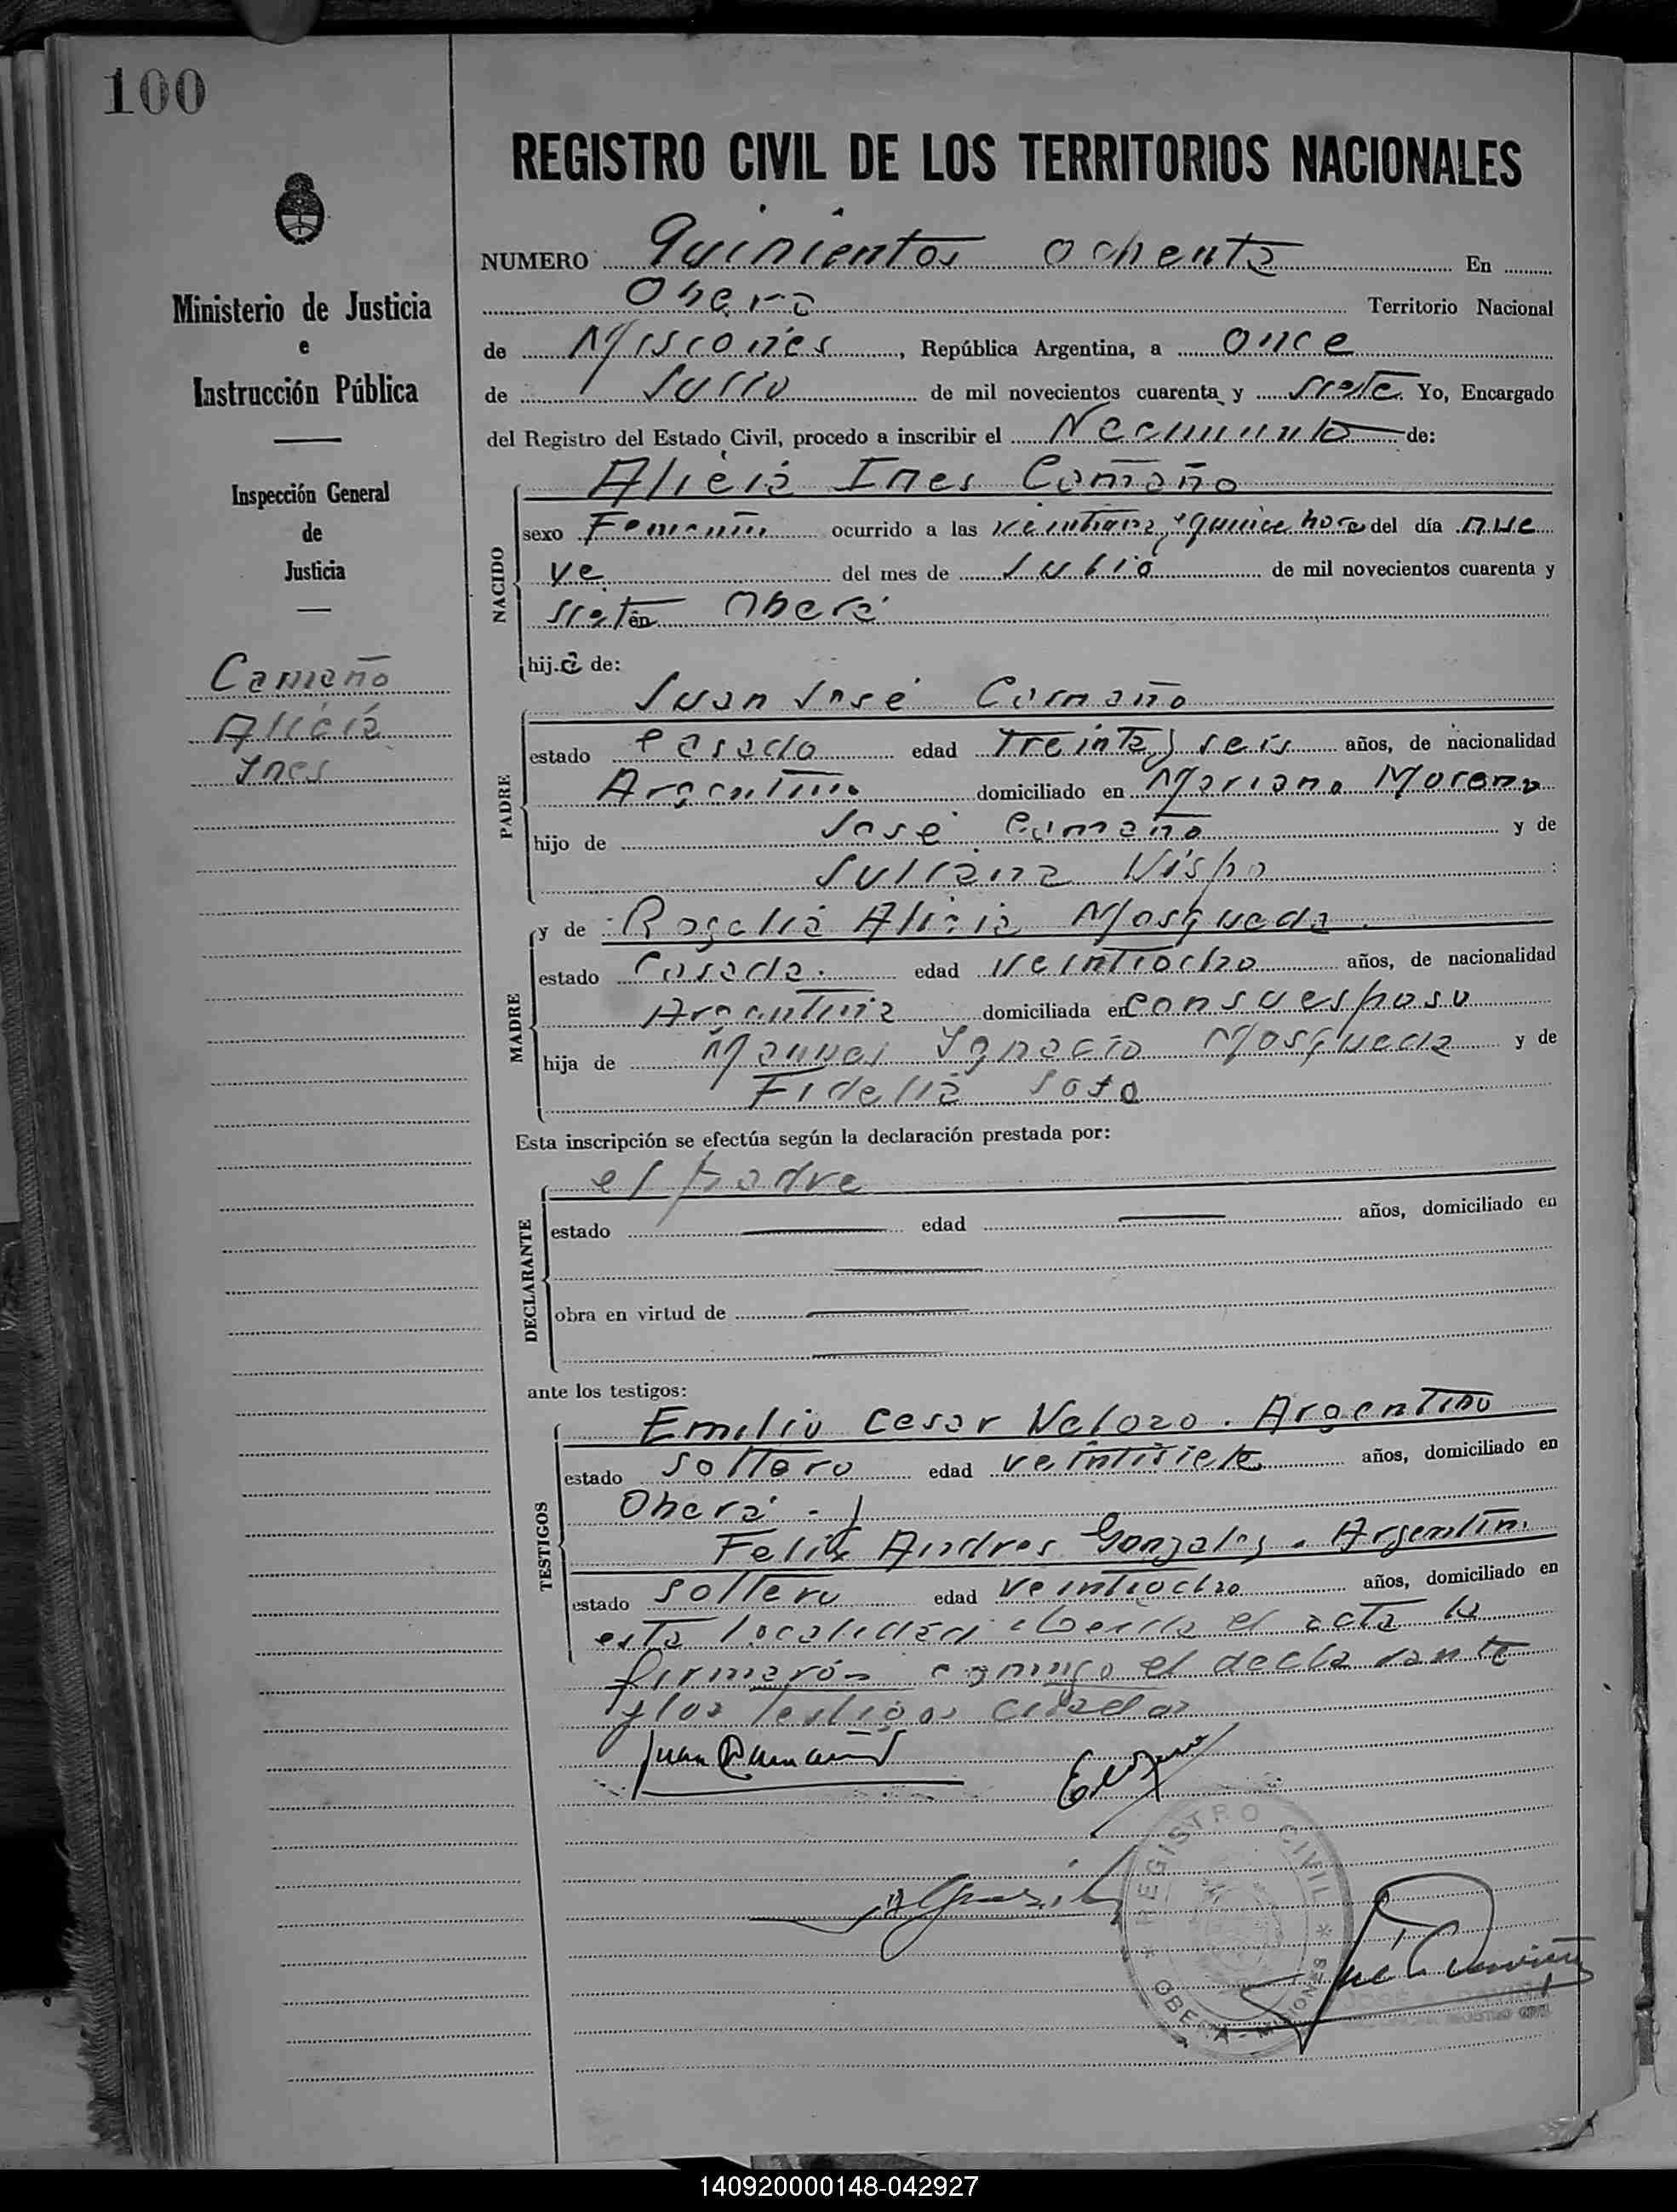 100
REGISTRO CIVIL DE LOS TERRITORIOS NACIONALES
Ministerio de Justicia
e
Instrucción Pública
Inspección General
de
Justicia
Camaño
Alicia
Ines
NUMERO Quinientos ochenta En
Obera Territorio Nacional
de Misiones, República Argentina, a once
de Julio de mil novecientos cuarenta y siete Yo, Encargado
del Registro del Estado Civil, procedo a inscribir el Nacimiento de:
NACIDO
Alicia Ines Camaño
sexo Femenino ocurrido a las y quince hora del día nue
ve del mes de Julio de mil novecientos cuarenta y
siete en Oberá
hij.a de:
PADRE
Juan José Camaño
estado Casado edad treinta y seis años, de nacionalidad
Argentino domiciliado en Mariano Moreno
hijo de José Camaño y de
Juliana Vispo
MADRE
y de Rogelia Alicia Mosqueda
estado Casada. edad veintiocho años, de nacionalidad
Argentina domiciliada en con su esposo
hija de Manuel Ignacio Mosqueda y de
Fidelia Soto
Esta inscripción se efectúa según la declaración prestada por:
DECLARANTE
el padre
estado edad años, domiciliado en
obra en virtud de
ante los testigos:
TESTIGOS
Emilio Cesar Velozo. Argentino
estado soltero edad veintisiete años, domiciliado en
Oberá. y
Felix Andres Gonzalez. Argentin.
estado soltero edad veintiocho años, domiciliado en
esta localidad el acta la
firmarón conmigo el declarante
y los testigos citados
Juan Camaño
REGISTRO CIVIL
OBERA - MISIONES
140920000148-042927